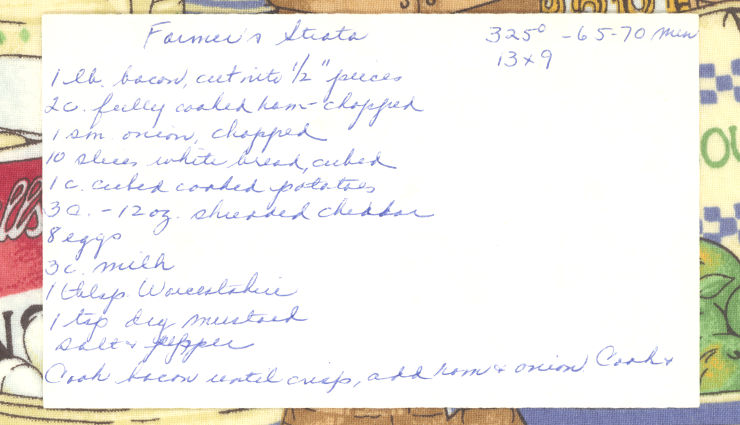 Farmer's Strata
325° - 65-70 min
13x9
1 lb. bacon, cut into 1/2" pieces
2 c. fully cooked ham - chopped
1 sm. onion, chopped
10 slices white bread, cubed
1 c. cubed cooked potatoes
3 c. - 12 oz. shredded cheddar
8 eggs
3c. milk
1 tblsp. Worcestshire
1 tsp dry mustard
salt & pepper
Cook bacon until crisp, add ham & onion Cook &